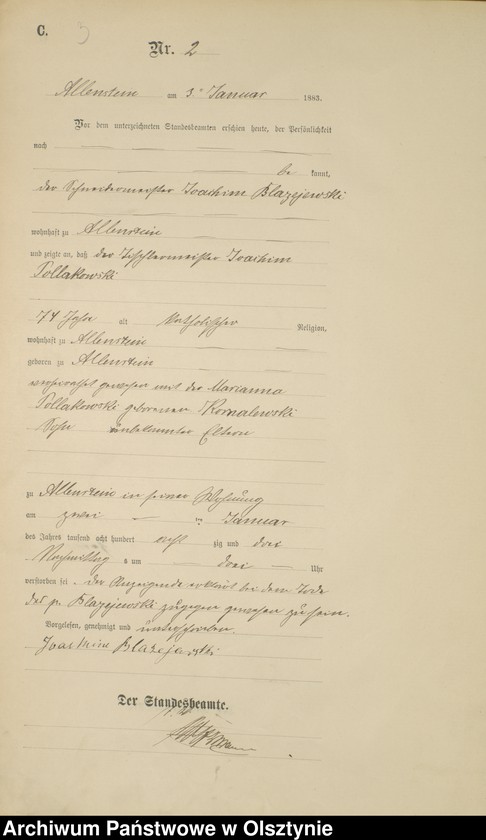 C. 3
Nr. 2
Allenstein am 3ten Januar 1883.
Vor dem unterzeichneten Standesbeamten erschien heute, der Persönlichkeit
nach
be kannt,
der Schneidermeister Joachim Blazejewski
wohnhaft zu Allenstein
und zeigte an, daß der Tischlermeister Joachim
Pollakowski
74 Jahr alt Katholischer Religion,
wohnhaft zu Allenstein
geboren zu Allenstein
verheirathet gewesen mit der Marianna
Pollakowski geborenen Romalewski
Sohn unbekannter Eltern
zu Allenstein in seiner Wohnung
am zwei ten Januar
des Jahres tausend acht hundert acht zig und drei
Nachmittag s um drei Uhr
verstorben sei. Der Anzeigende erklärt bei dem Tode
des p. Blazejewski zugegen gewesen zu sein.
Vorgelesen, genehmigt und unterschrieben.
Joachim Blazejewski
Der Standesbeamte.
Archiwum Państwowe w Olsztynie